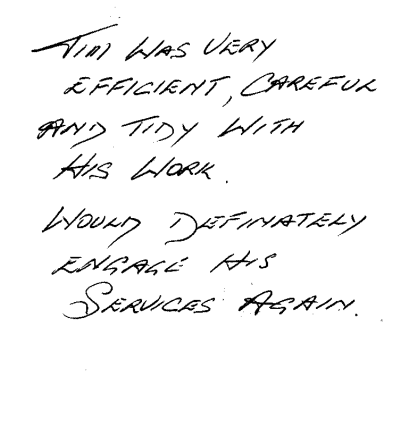 TIM WAS VERY
EFFICIENT, CAREFUL
AND TIDY WITH
HIS WORK.
WOULD DEFINATELY
ENGAGE HIS
SERVICES AGAIN.